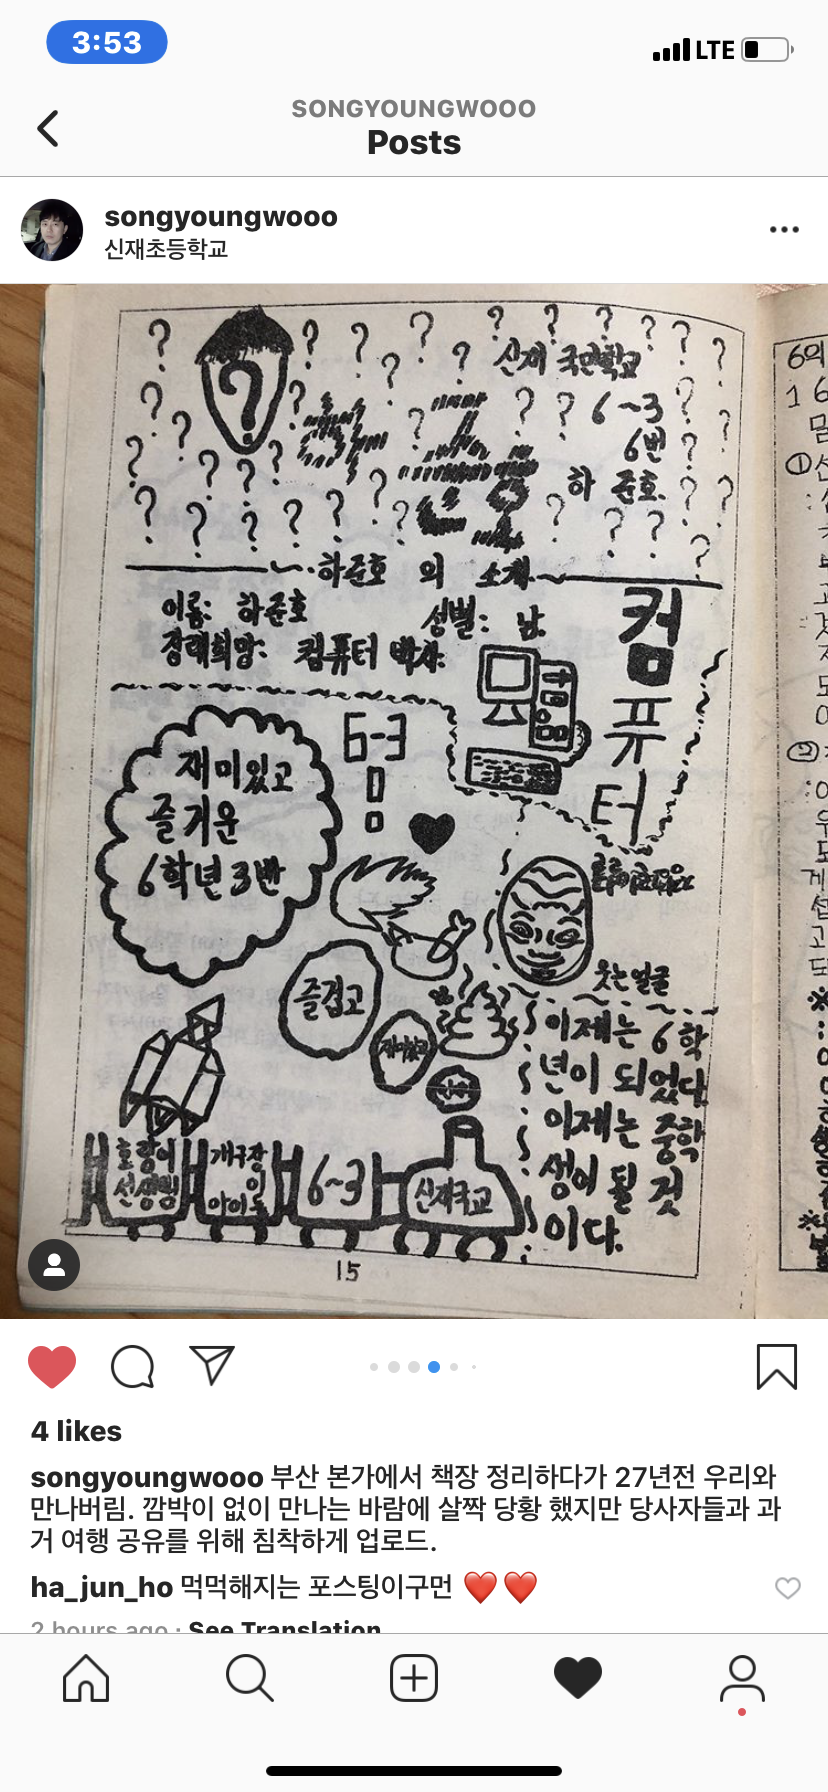 3:53
LTE
SONGYOUNGWOOO
Posts
songyoungwooo
신재초등학교
? ? ? ? ? ? ? ? ? ?
신재 국민학교
6~3
6번
하 준호.
하 준 호
하준호 의 소개
이름: 하준호
성별: 남.
장래희망: 컴퓨터 박사.
컴
퓨
터
6-3
재미있고
즐거운
6학년 3반
웃는얼굴
즐겁고
재미있고
이제는 6학
년이 되었다.
이제는 중학
생이 될 것
이다.
호랑이
선생님
개구장
이
아이들
6~3
신재국교
15
6의
1 6
①선
②
4 likes
songyoungwooo 부산 본가에서 책장 정리하다가 27년전 우리와
만나버림. 깜박이 없이 만나는 바람에 살짝 당황 했지만 당사자들과 과
거 여행 공유를 위해 침착하게 업로드.
ha_jun_ho 먹먹해지는 포스팅이구먼 ❤️❤️
2 hours ago · See Translation